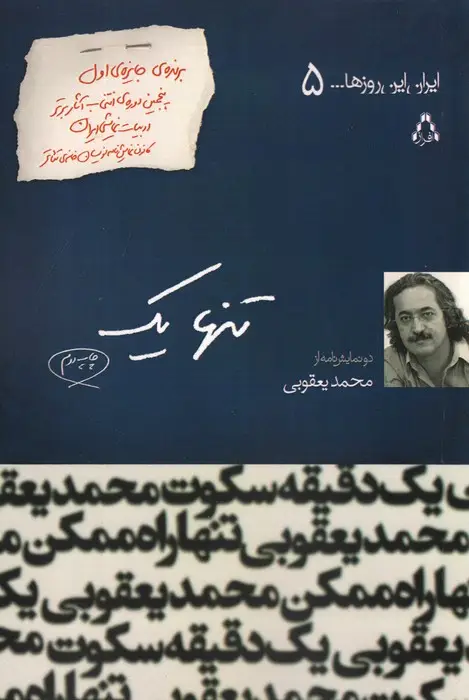 ایران این روزها... ۵
افراز
برنده‌ی جایزه‌ی اول
پنجمین دوره‌ی انتخاب آثار برتر
ادبیات نمایشی ایران
کانون نمایشنامه‌نویسان خانه‌ی تئاتر
تنها یک
چاپ دوم
دو نمایش‌نامه از
محمد یعقوبی
یک دقیقه سکوت محمد یعقو
محمد یعقوبی تنها راه ممکن م
تنها راه ممکن محمد یعقوبی یک
یعقوبی یک دقیقه سکوت مح